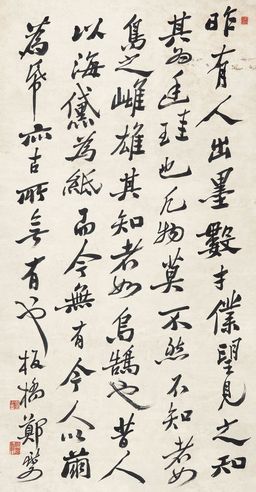 昨有人出墨數寸僕望見之知
其為廷珪也凡物莫不然不知者如
烏之雌雄其知者如烏鵠也昔人
以海黛為紙而今無有今人以繭
為帋亦古所無有也板橋鄭燮